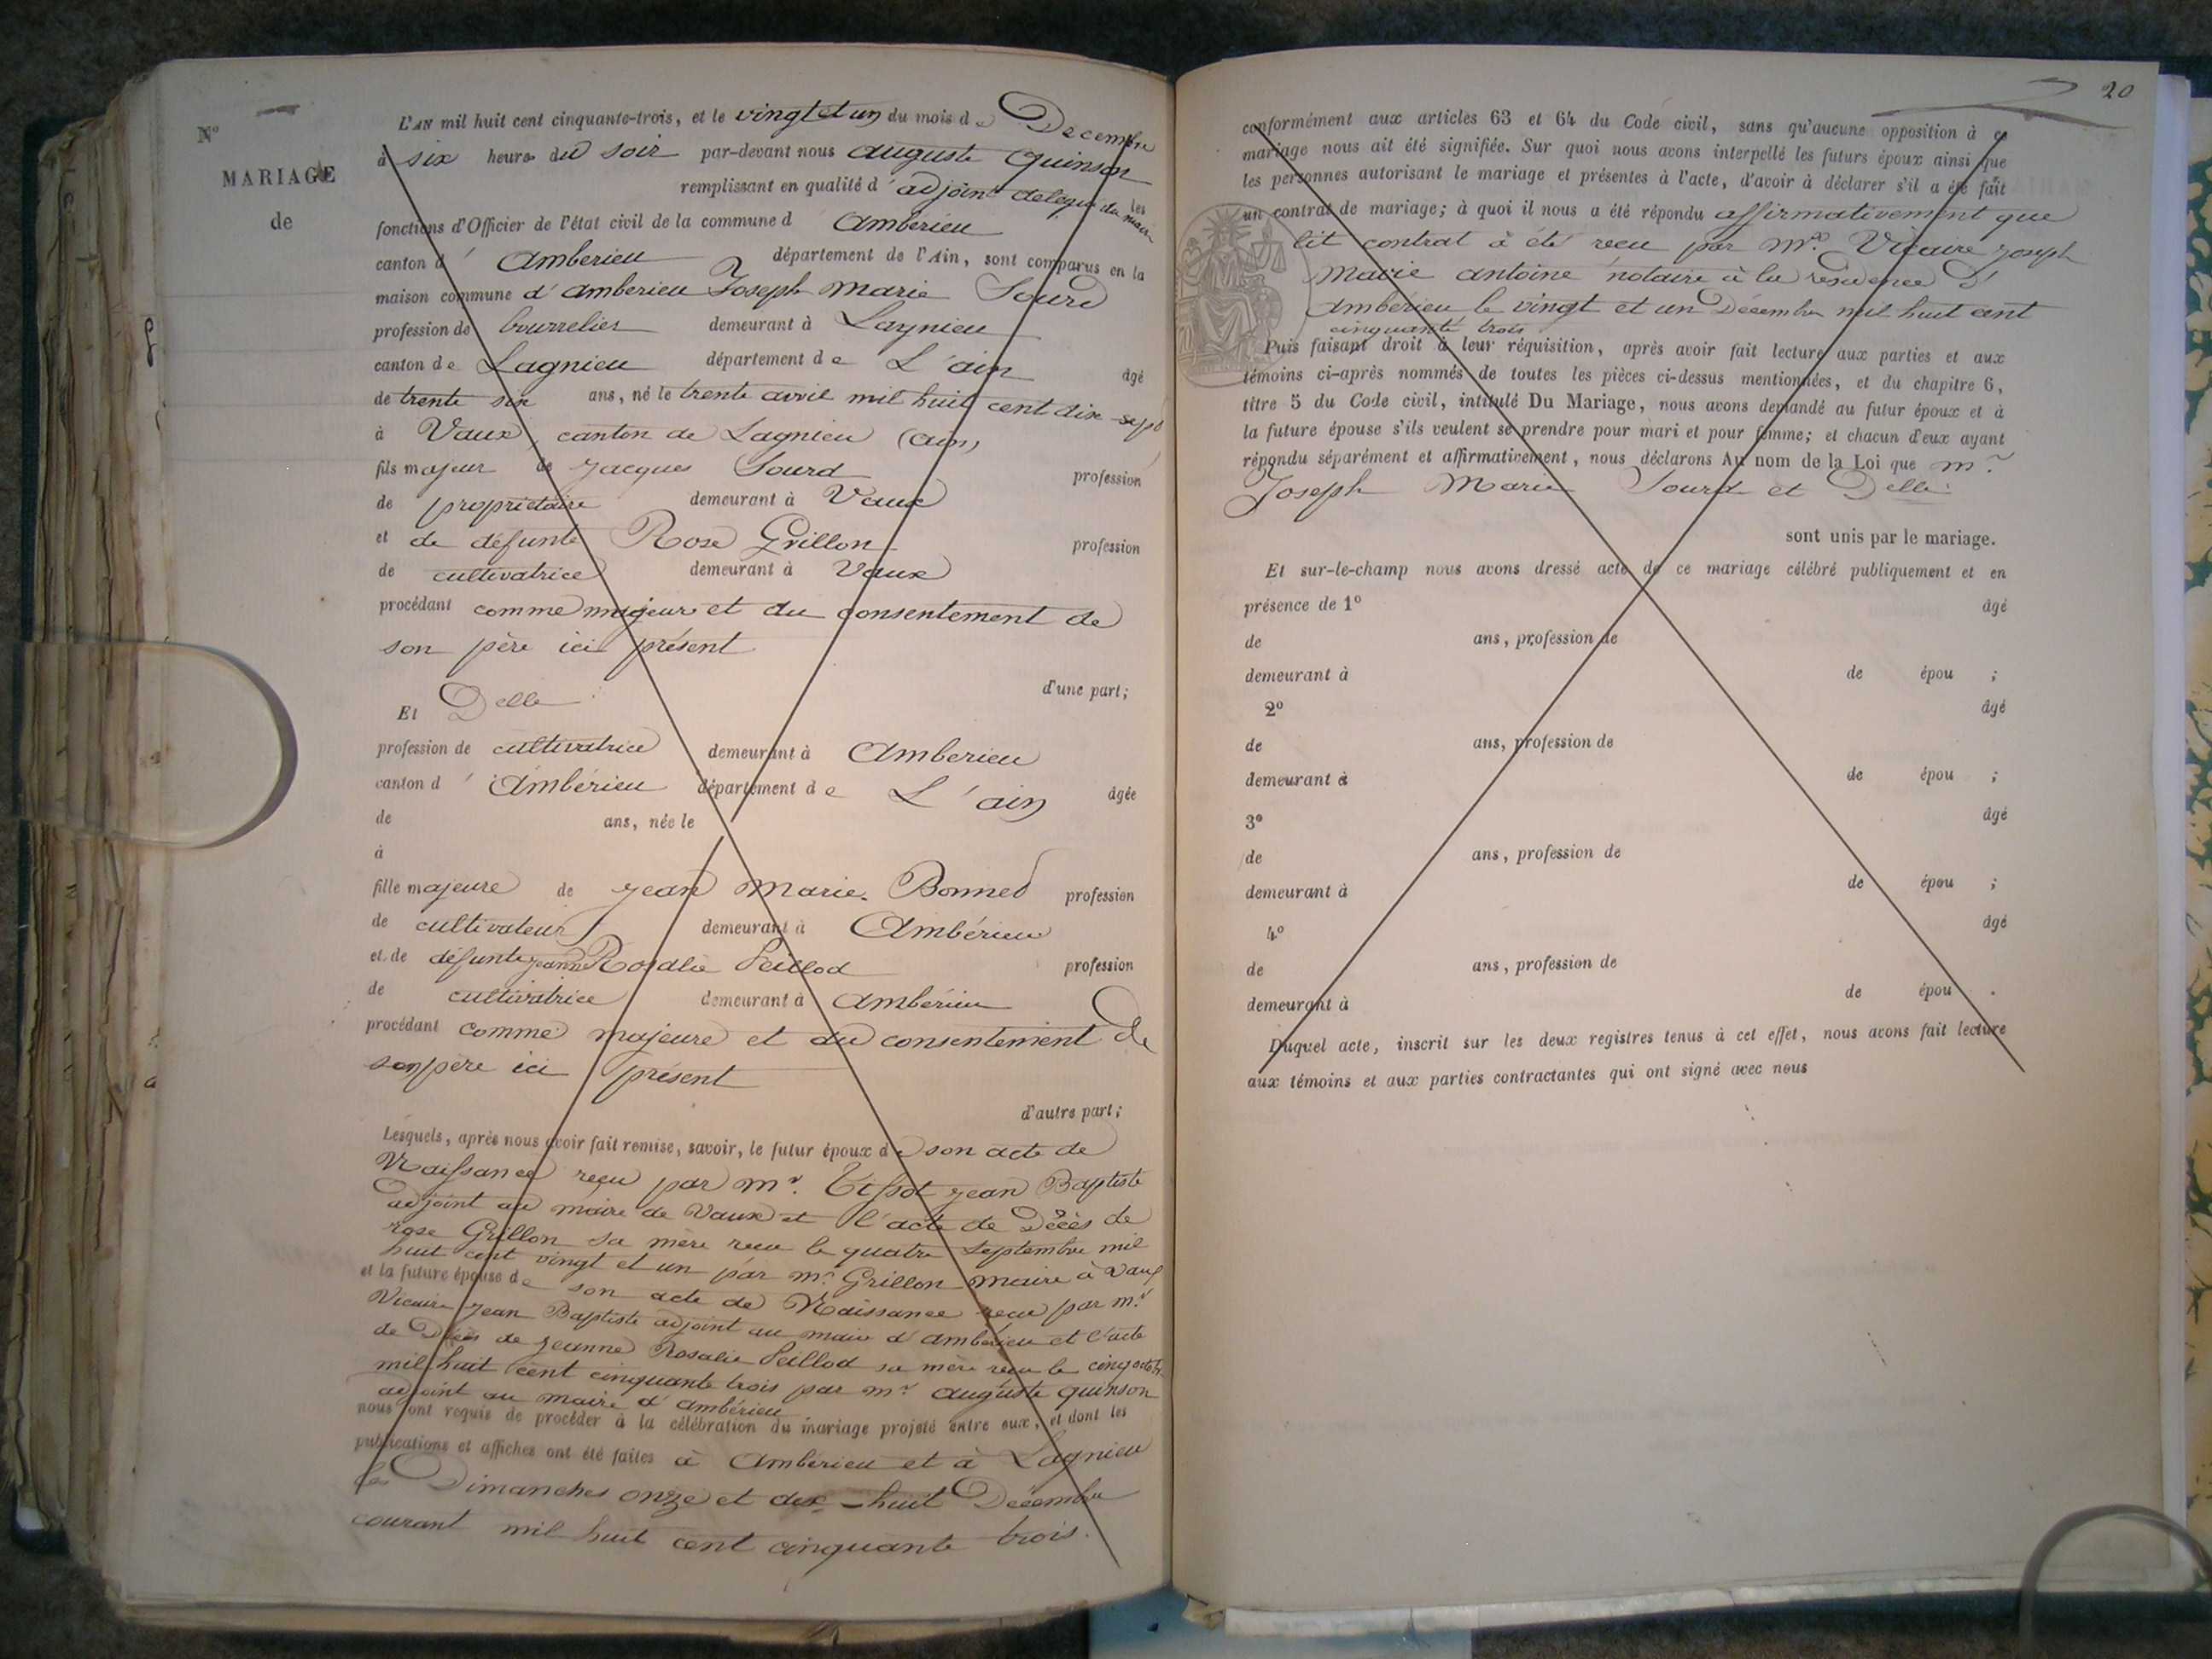 N°
MARIAGE
de
L'AN mil huit cent cinquante-trois, et le vingt et un du mois de Decembre
à six heures du soir par-devant nous auguste Quinson
remplissant en qualité d'adjoint delegué du maire les
fonctions d'Officier de l'état civil de la commune d Amberieu
canton d' Amberieu département de l'Ain, sont comparus en la
maison commune d'amberieu Joseph Marie Sourd
profession de bourrelier demeurant à Lagnieu
canton de Lagnieu département de L'ain âgé
de trente six ans, né le trente avril mil huit cent dix-sept
à Vaux, canton de Lagnieu (ain)
fils majeur de Jacques Sourd profession
de propriétaire demeurant à Vaux
et de défunte Rose Grillon profession
de cultivatrice demeurant à Vaux
procédant comme majeur et du consentement de
son père ici présent
d'une part;
Et Delle
profession de cultivatrice demeurant à Amberieu
canton d' Ambérieu département de L'ain âgée
de ans, née le
à
fille majeure de Jean Marie Bonned profession
de cultivateur demeurant à Ambérieu
et de défunte Jeanne Rosalie Peillod profession
de cultivatrice demeurant à Ambérieu
procédant comme majeure et du consentement de
son père ici présent
d'autre part;
Lesquels, après nous avoir fait remise, savoir, le futur époux de son acte de
Naissance reçu par Mr. Tissot Jean Baptiste
adjoint au maire de Vaux et l'acte de Décès de
rose Grillon sa mère reçu le quatre septembre mil
huit cent vingt et un par Mr. Grillon maire à Vaux
et la future épouse de son acte de Naissance reçu par Mr.
Vicaire Jean Baptiste adjoint au maire d'ambérieu et l'acte
de Décès de Jeanne Rosalie Peillod sa mère reçu le cinq octobre
mil huit cent cinquante trois par Mr. auguste quinson
adjoint au maire d'ambérieu
nous ont requis de procéder à la célébration du mariage projeté entre eux, et dont les
publications et affiches ont été faites à Amberieu et à Lagnieu
les Dimanches onze et dix-huit Décembre
courant mil huit cent cinquante trois.
20
conformément aux articles 63 et 64 du Code civil, sans qu'aucune opposition à ce
mariage nous ait été signifiée. Sur quoi nous avons interpellé les futurs époux ainsi que
les personnes autorisant le mariage et présentes à l'acte, d'avoir à déclarer s'il a été fait
un contrat de mariage; à quoi il nous a été répondu affirmativement que
dit contrat à été reçu par Me. Vicaire Joseph
Marie antoine notaire à la residence d'
Ambérieu le vingt et un Décembre mil huit cent
cinquante trois
Puis faisant droit à leur réquisition, après avoir fait lecture aux parties et aux
témoins ci-après nommés de toutes les pièces ci-dessus mentionnées, et du chapitre 6,
titre 5 du Code civil, intitulé Du Mariage, nous avons demandé au futur époux et à
la future épouse s'ils veulent se prendre pour mari et pour femme; et chacun d'eux ayant
répondu séparément et affirmativement, nous déclarons Au nom de la Loi que Mr.
Joseph Marie Sourd et Delle.
sont unis par le mariage.
Et sur-le-champ nous avons dressé acte de ce mariage célébré publiquement et en
présence de 1° âgé
de ans, profession de
demeurant à de épou ;
2° âgé
de ans, profession de
demeurant à de épou ;
3° âgé
de ans, profession de
demeurant à de épou ;
4° âgé
de ans, profession de
demeurant à de épou .
Duquel acte, inscrit sur les deux registres tenus à cet effet, nous avons fait lecture
aux témoins et aux parties contractantes qui ont signé avec nous